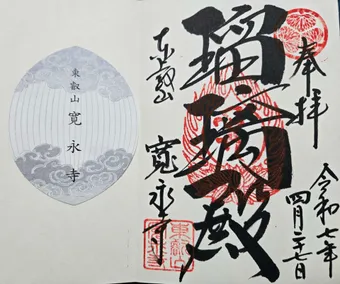 奉拝
令和七年
四月二十七日
瑠璃殿
東叡山
寛永寺
東叡山
寛永寺